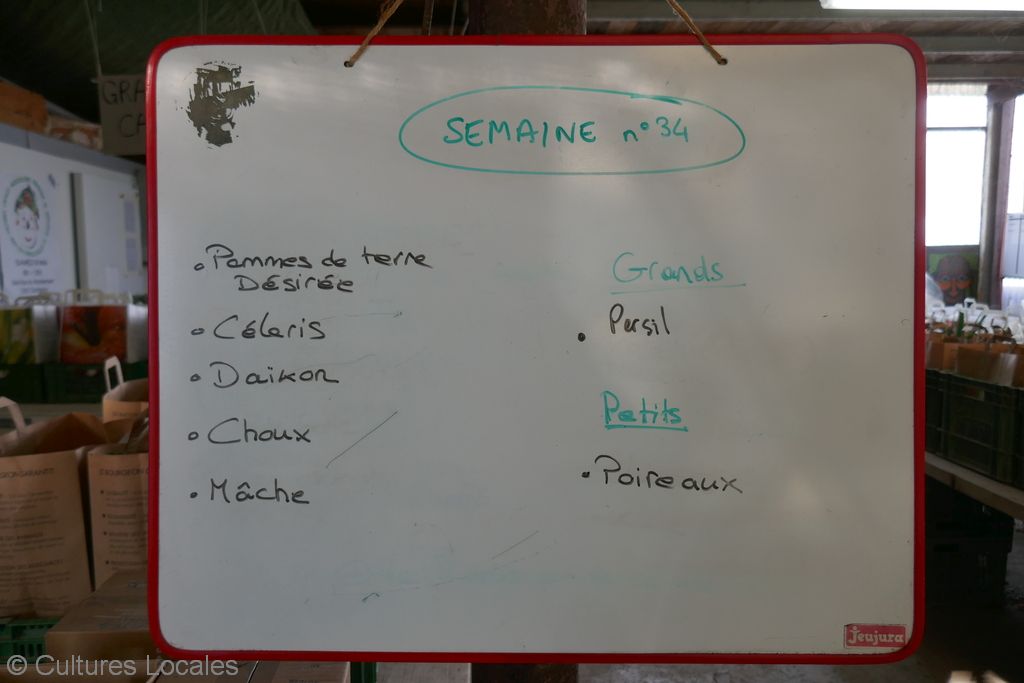 SEMAINE n°34
• Pommes de terre
Désirée
• Céleris
• Daïkon
• Choux
• Mâche
Grands
• Persil
Petits
• Poireaux
jeujura
© Cultures Locales